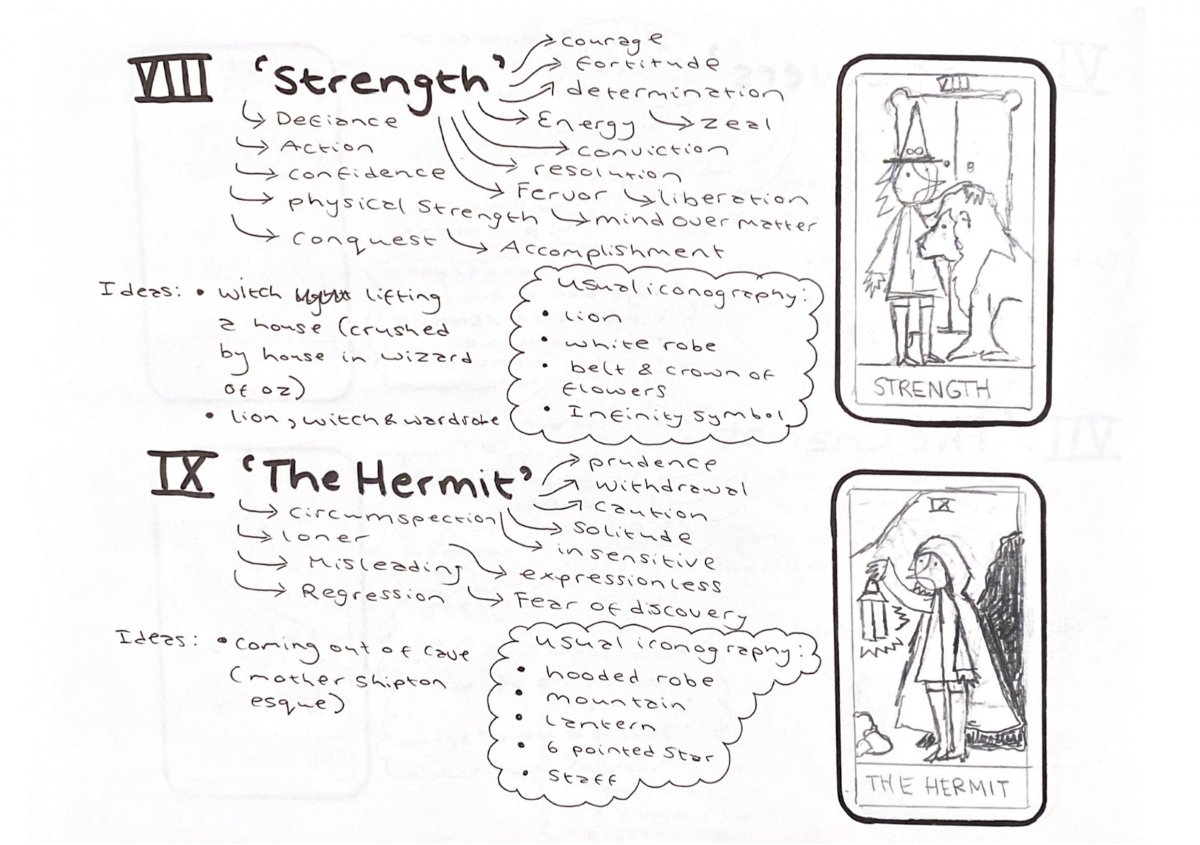 VIII 'Strength'
→ courage
→ fortitude
→ determination
→ Energy → zeal
→ conviction
→ resolution
→ Fervor → liberation
→ Defiance
→ Action
→ confidence
→ physical Strength → mind over matter
→ Conquest → Accomplishment
Ideas: • witch lifting
a house (crushed
by house in wizard
of oz)
• lion, witch & wardrobe
usual iconography:
• lion
• white robe
• belt & crown of
flowers
• Infinity symbol
VIII
STRENGTH
IX 'The Hermit'
→ prudence
→ withdrawal
→ caution
→ Solitude
→ insensitive
→ expressionless
→ circumspection
→ loner
→ Misleading
→ Regression → Fear of discovery
Ideas: • coming out of cave
(mother shipton
esque)
usual iconography:
• hooded robe
• mountain
• lantern
• 6 pointed star
• Staff
IX
THE HERMIT